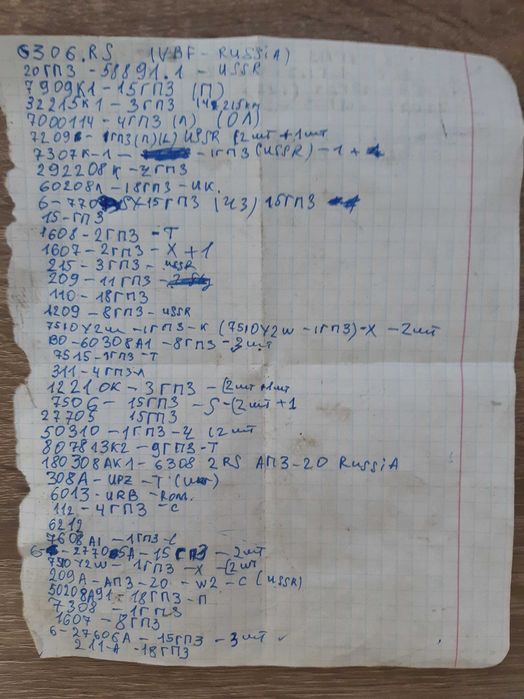 6306.RS (VBF - RUSSIA)
20ГПЗ - 58891.1 - USSR
7909К1 - 15ГПЗ (П)
32215К1 - 3ГПЗ
7000114 - 4ГПЗ (Л) (ОЛ)
7209 - 1ГПЗ (Л) (L) USSR (2шт + 1шт
7307К-1 - 1ГПЗ (USSR) - 1 +
292208К - 4ГПЗ
60208А - 18ГПЗ - ИК.
6-770 15ГПЗ (ЧЗ) 15ГПЗ
15-ГПЗ
1608 - 2ГПЗ - Т
1607 - 2ГПЗ - Х + 1
215 - 3ГПЗ - USSR
209 - 11ГПЗ -
110 - 18ГПЗ
1209 - 8ГПЗ - USSR
7510У2ш - 1ГПЗ - К (7510У2ш - 1ГПЗ) - Х - 2шт
80-60308А1 - 8ГПЗ - 3шт
7515 - 1ГПЗ - Т
311 - 4ГПЗ - Л
12210К - 3ГПЗ - (2шт + 1шт
7506 - 15ГПЗ - S - (2шт + 1
27705 15ГПЗ
50310 - 1ГПЗ - Ч (2шт
807813К2 - 9ГПЗ - Т
180308АК1 - 6308 2RS АПЗ-20 RUSSIA
308А - UPZ - Т
6013 - URB - ROM.
112 - 4ГПЗ - С
6212
7608А1 - 1ГПЗ -
6 - 27705А - 15ГПЗ - 2шт
7510У2ш - 1ГПЗ - Х - (2шт
209А - АПЗ - 20 - W2 - С (USSR)
50208А91 - 18ГПЗ - П
7308 - 1ГПЗ
1607 - 8ГПЗ
6-27606А - 15ГПЗ - 3шт
211-А - 18ГПЗ